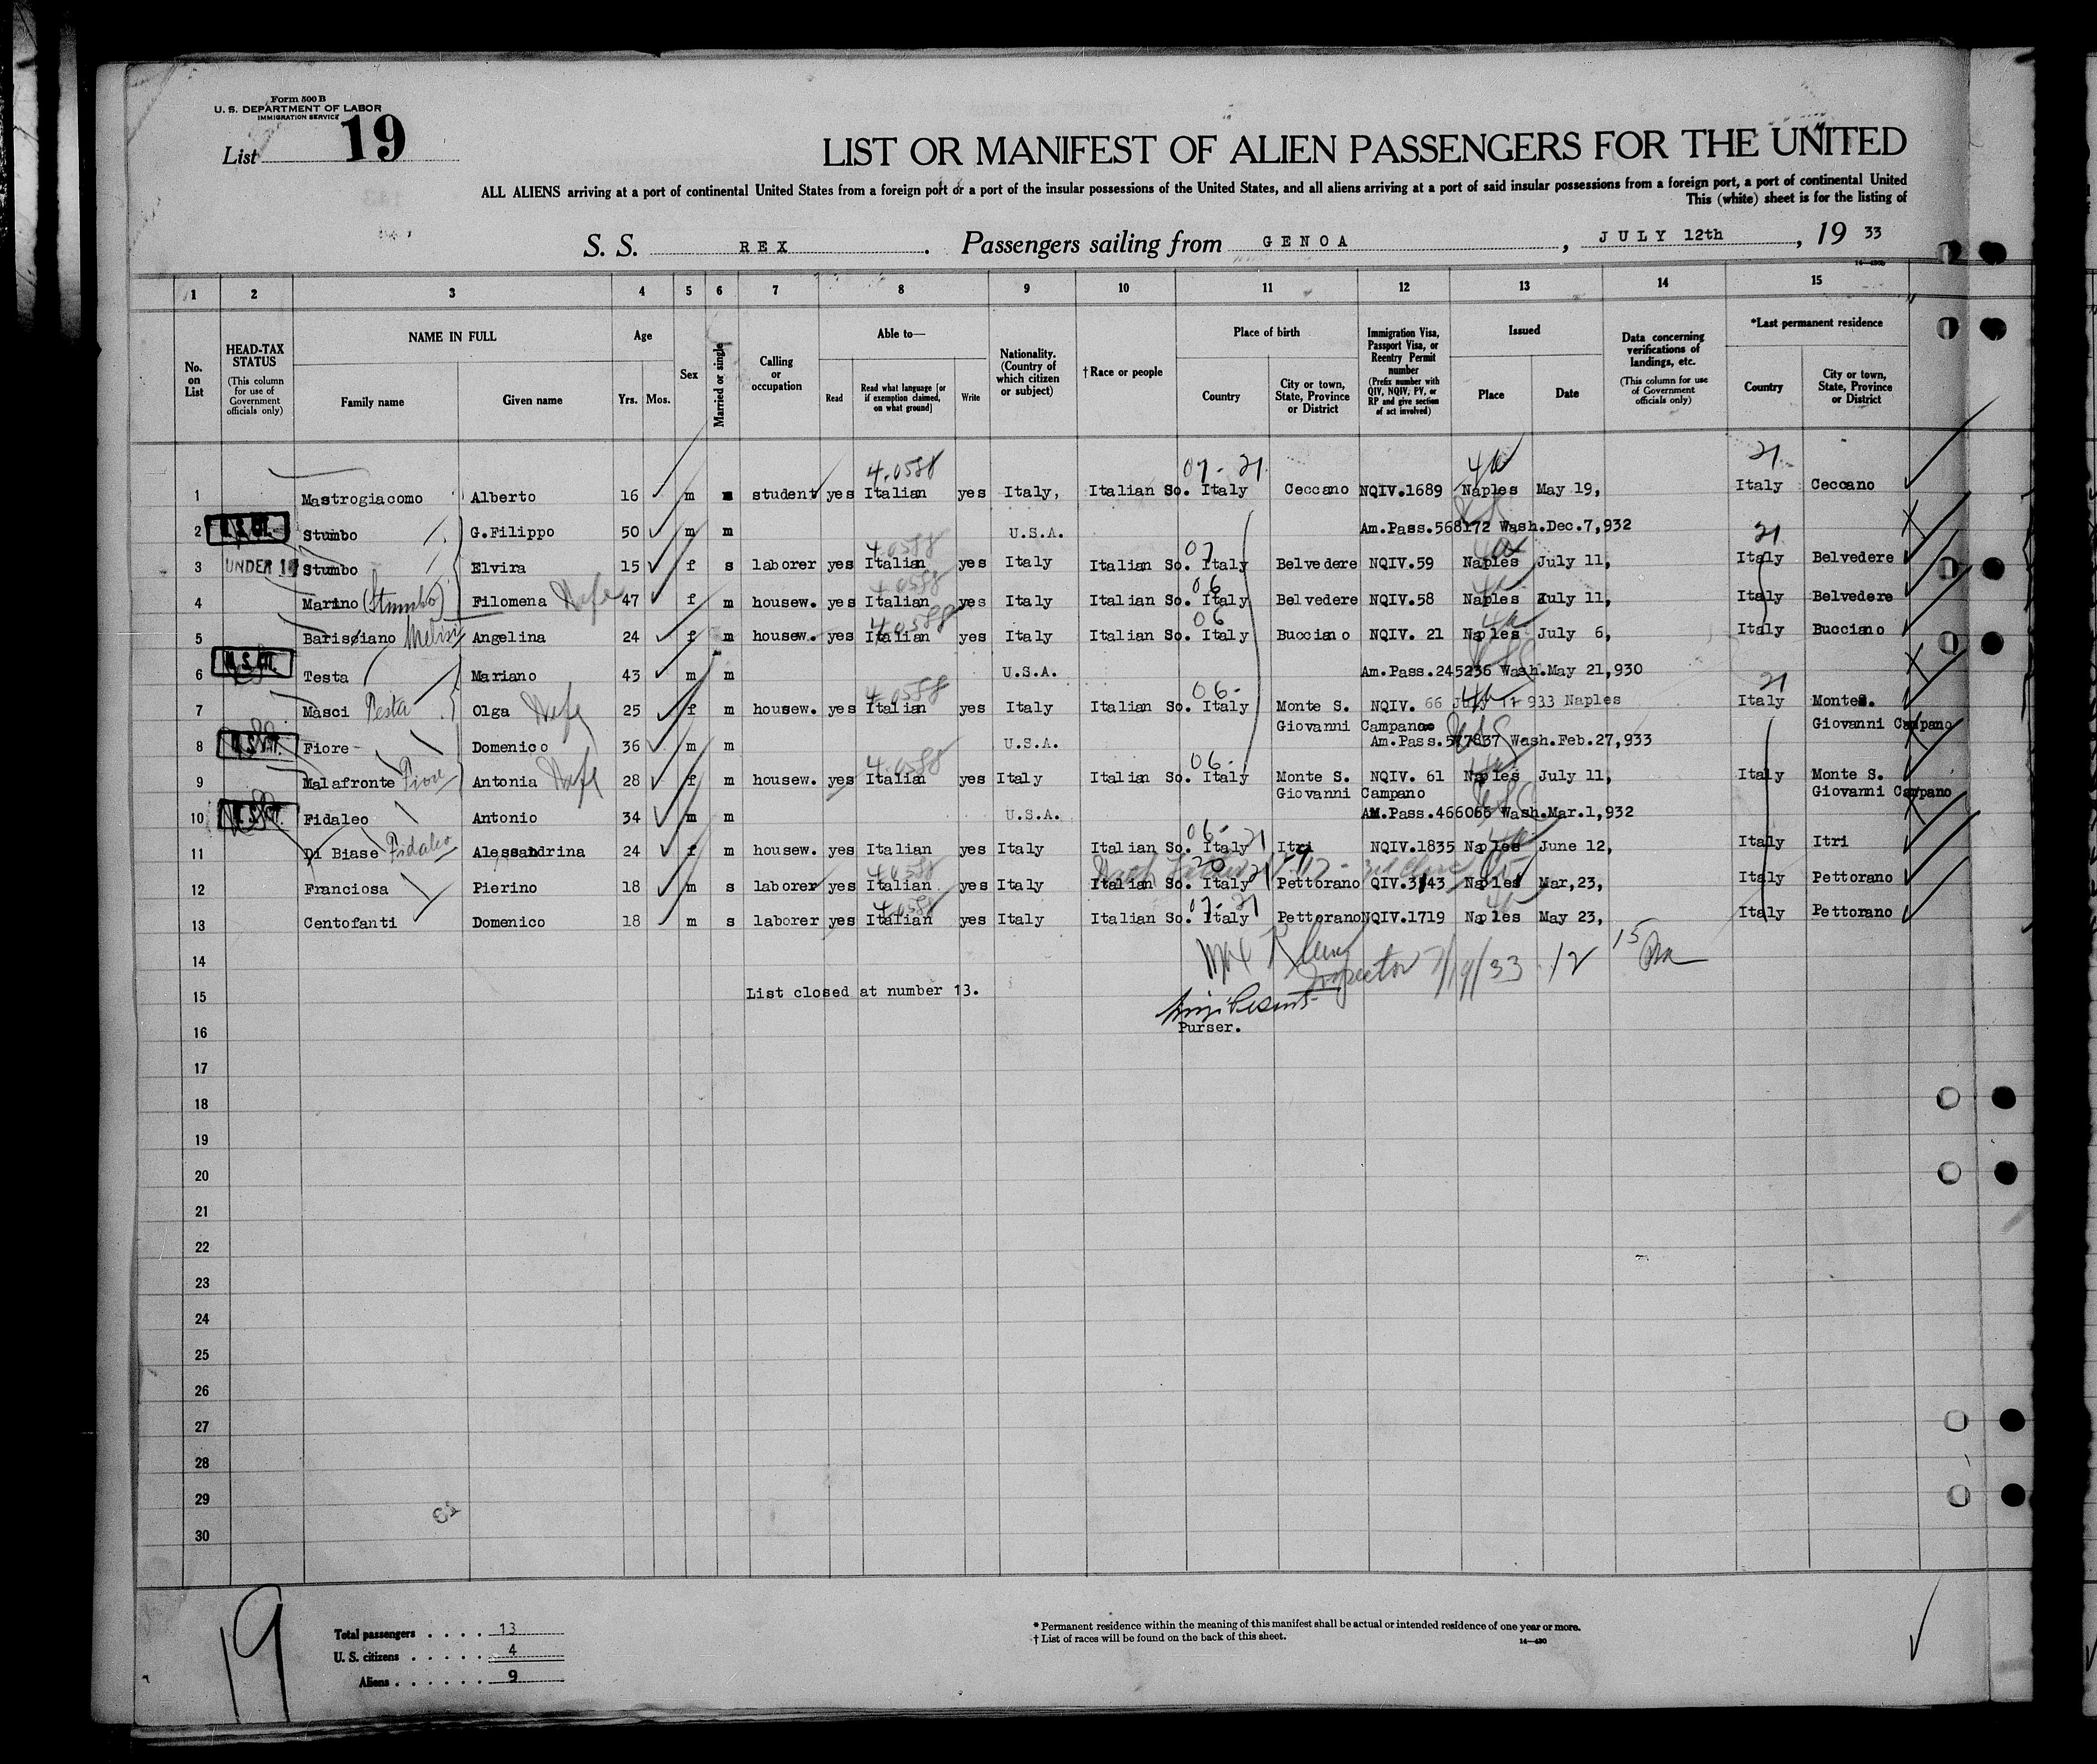 Form 500 B
U. S. DEPARTMENT OF LABOR
IMMIGRATION SERVICE
List 19
LIST OR MANIFEST OF ALIEN PASSENGERS FOR THE UNITED
ALL ALIENS arriving at a port of continental United States from a foreign port or a port of the insular possessions of the United States, and all aliens arriving at a port of said insular possessions from a foreign port, a port of continental United
This (white) sheet is for the listing of
S. S. REX. Passengers sailing from GENOA, JULY 12th, 19 33
1 2 3 4 5 6 7 8 9 10 11 12 13 14 15
No. on List
HEAD-TAX STATUS (This column for use of Government officials only)
NAME IN FULL
Family name Given name
Age
Yrs. Mos.
Sex
Married or single
Calling or occupation
Able to—
Read
Read what language [or if exemption claimed, on what ground]
Write
Nationality. (Country of which citizen or subject)
†Race or people
Place of birth
Country
City or town, State, Province or District
Immigration Visa, Passport Visa, or Reentry Permit number (Prefix number with QIV, NQIV, PV, or RP and give section of act involved)
Issued
Place Date
Data concerning verifications of landings, etc. (This column for use of Government officials only)
*Last permanent residence
Country
City or town, State, Province or District
4.0588 07- 21 21
1 Mastrogiacomo Alberto 16 m s student yes Italian yes Italy, Italian So. Italy Ceccano NQIV.1689 Naples May 19, Italy Ceccano
2 Stumbo G.Filippo 50 m m U.S.A. Am.Pass.568172 Wash.Dec.7,932 21
4.0588 07
3 UNDER 16 Stumbo Elvira 15 f s laborer yes Italian yes Italy Italian So. Italy Belvedere NQIV.59 Naples July 11, Italy Belvedere
4.0588 06
4 Marino (Stumbo) Filomena Wife 47 f m housew. yes Italian yes Italy Italian So. Italy Belvedere NQIV.58 Naples July 11, Italy Belvedere
4.0588 06
5 Barisciano Angelina 24 f m housew. yes Italian yes Italy Italian So. Italy Bucciano NQIV. 21 Naples July 6, Italy Bucciano
6 Testa Mariano 43 m m U.S.A. Am.Pass.245236 Wash.May 21,930
4.0588 06- 21
7 Masci Testa Olga Wife 25 f m housew. yes Italian yes Italy Italian So. Italy Monte S. NQIV. 66 July 11 933 Naples Italy Monte S.
Giovanni Campano Giovanni Campano
8 Fiore Domenico 36 m m U.S.A. Am.Pass.577837 Wash.Feb.27,933
4.0588 06-
9 Malafronte Fiore Antonia Wife 28 f m housew. yes Italian yes Italy Italian So. Italy Monte S. NQIV. 61 Naples July 11, Italy Monte S.
Giovanni Campano Giovanni Campano
10 Fidaleo Antonio 34 m m U.S.A. AM.Pass.466066 Wash.Mar.1,932
06- 21
11 Di Biase Fidaleo Alessandrina 24 f m housew. yes Italian yes Italy Italian So. Italy Itri NQIV.1835 Naples June 12, Italy Itri
4.0588 20 21
12 Franciosa Pierino 18 m s laborer yes Italian yes Italy Italian So. Italy Pettorano QIV.3143 Naples Mar,23, Italy Pettorano
4.0588 07-21
13 Centofanti Domenico 18 m s laborer yes Italian yes Italy Italian So. Italy Pettorano NQIV.1719 Naples May 23, Italy Pettorano
14
Inspector 7/19/33 12 15
15 List closed at number 13.
16 Purser.
17
18
19
20
21
22
23
24
25
26
27
28
29
30
19
Total passengers . . . . 13
U. S. citizens . . . . . 4
Aliens . . . . . . 9
* Permanent residence within the meaning of this manifest shall be actual or intended residence of one year or more.
† List of races will be found on the back of this sheet.
14—430